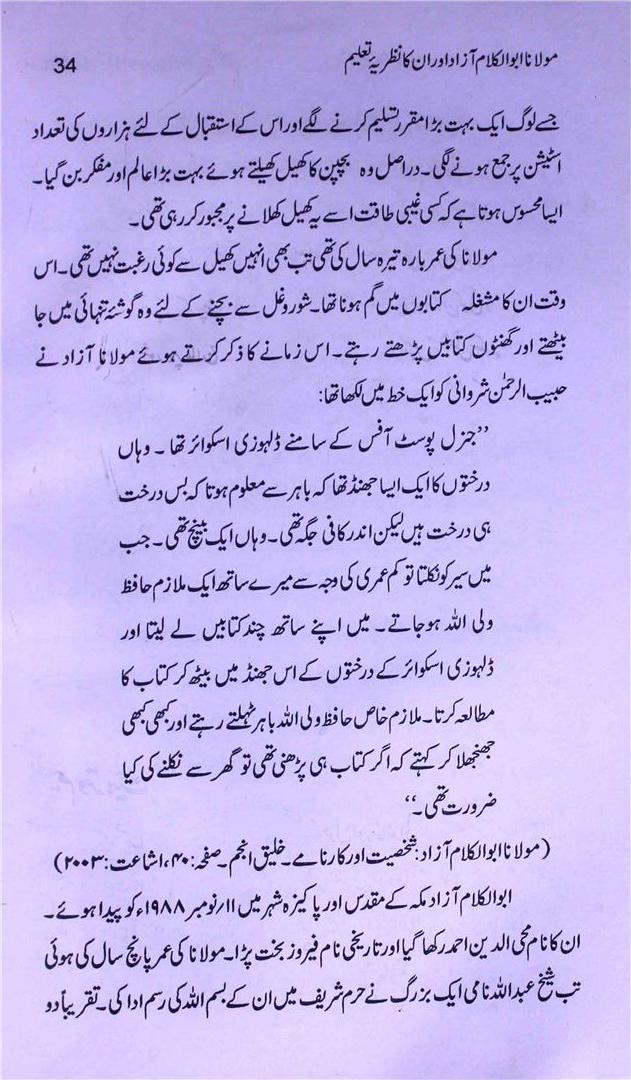 مولانا ابوالکلام آزاد اور ان کا نظریۂ تعلیم
34
جسے لوگ ایک بہت بڑا مقرر تسلیم کرنے لگے اور اس کے استقبال کے لئے ہزاروں کی تعداد
اسٹیشن پر جمع ہونے لگی۔ دراصل وہ بچپن کا کھیل کھیلتے ہوئے بہت بڑا عالم اور مفکر بن گیا۔
ایسا محسوس ہوتا ہے کہ کسی غیبی طاقت اسے یہ کھیل کھلانے پر مجبور کر رہی تھی۔
مولانا کی عمر بارہ تیرہ سال کی تھی تب بھی انہیں کھیل سے کوئی رغبت نہیں تھی۔ اس
وقت ان کا مشغلہ کتابوں میں گم ہونا تھا۔ شور و غل سے بچنے کے لئے وہ گوشۂ تنہائی میں جا
بیٹھتے اور گھنٹوں کتابیں پڑھتے رہتے۔ اس زمانے کا ذکر کرتے ہوئے مولانا آزاد نے
حبیب الرحمٰن شروانی کو ایک خط میں لکھا تھا:
’’جنرل پوسٹ آفس کے سامنے ڈلہوزی اسکوائر تھا ۔ وہاں
درختوں کا ایک ایسا جھنڈ تھا کہ باہر سے معلوم ہوتا کہ بس درخت
ہی درخت ہیں لیکن اندر کافی جگہ تھی۔ وہاں ایک بینچ تھی ۔ جب
میں سیر کو نکلتا تو کم عمری کی وجہ سے میرے ساتھ ایک ملازم حافظ
ولی اللہ ہو جاتے ۔ میں اپنے ساتھ چند کتابیں لے لیتا اور
ڈلہوزی اسکوائر کے درختوں کے اس جھنڈ میں بیٹھ کر کتاب کا
مطالعہ کرتا۔ ملازم خاص حافظ ولی اللہ باہر ٹہلتے رہتے اور کبھی کبھی
جھنجھلا کر کہتے کہ اگر کتاب ہی پڑھنی تھی تو گھر سے نکلنے کی کیا
ضرورت تھی۔‘‘
(مولانا ابوالکلام آزاد: شخصیت اور کارنامے۔ خلیق انجم۔ صفحہ: ۴۰، اشاعت: ۲۰۰۳)
ابوالکلام آزاد مکہ کے مقدس اور پاکیزہ شہر میں ۱۱؍نومبر ۱۹۸۸ء کو پیدا ہوئے۔
ان کا نام محی الدین احمد رکھا گیا اور تاریخی نام فیروز بخت پڑا۔ مولانا کی عمر پانچ سال کی ہوئی
تب شیخ عبداللہ نامی ایک بزرگ نے حرم شریف میں ان کے بسم اللہ کی رسم ادا کی۔ تقریباً دو